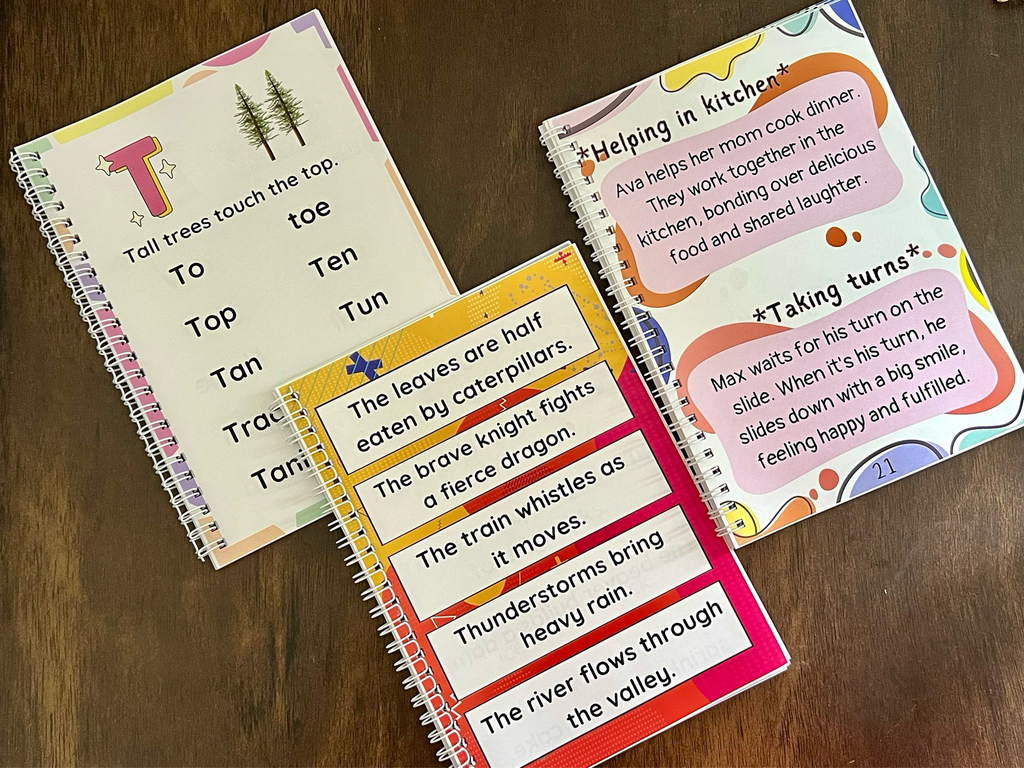 T
Tall trees touch the top.
To
toe
Top
Ten
Tan
Tun
The leaves are half
eaten by caterpillars.
The brave knight fights
a fierce dragon.
The train whistles as
it moves.
Thunderstorms bring
heavy rain.
The river flows through
the valley.
*Helping in kitchen*
Ava helps her mom cook dinner.
They work together in the
kitchen, bonding over delicious
food and shared laughter.
*Taking turns*
Max waits for his turn on the
slide. When it's his turn, he
slides down with a big smile,
feeling happy and fulfilled.
21